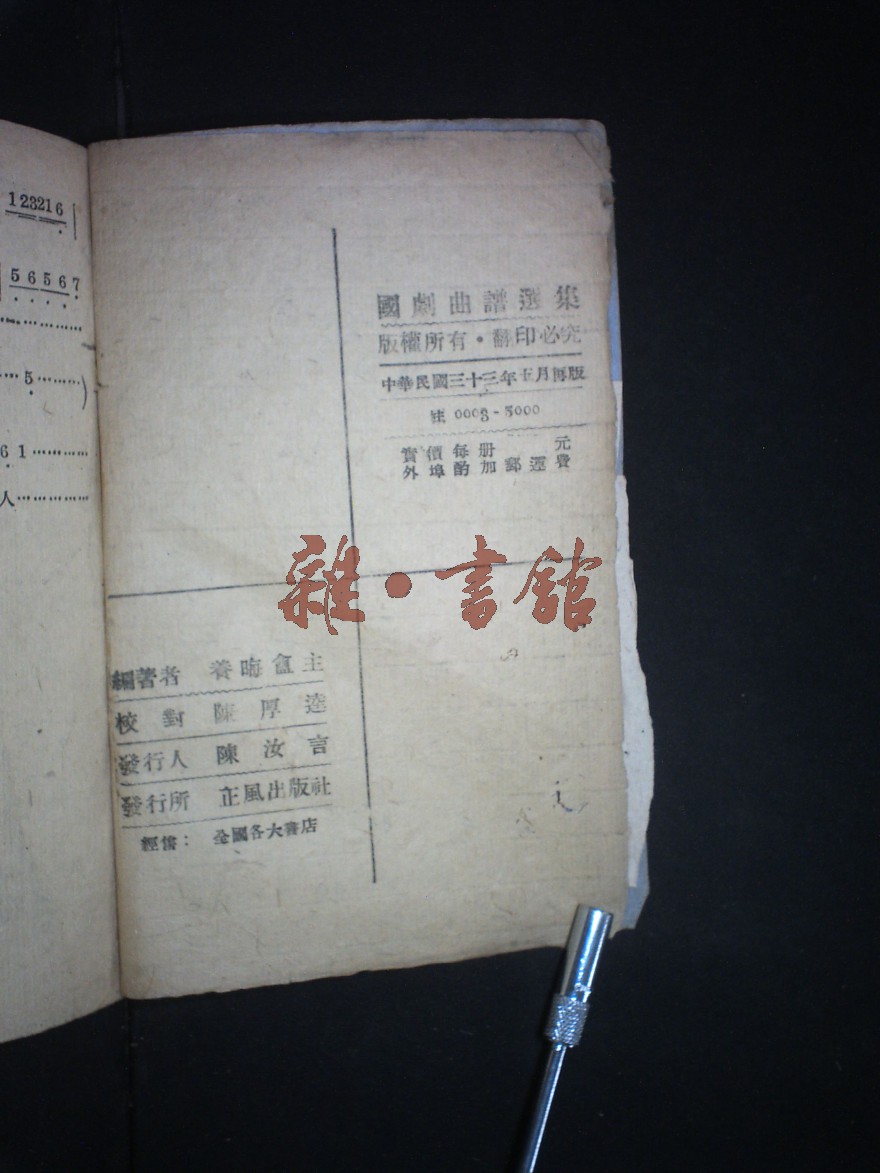 123216
56567
5
61
人
國劇曲譜選集
版權所有・翻印必究
中華民國三十三年十月再版
0003-5000
實價每册 元
外埠酌加郵運費
雜・書館
編著者 養晦盦主
校對 陳厚達
發行人 陳汝言
發行所 正風出版社
經售： 全國各大書店